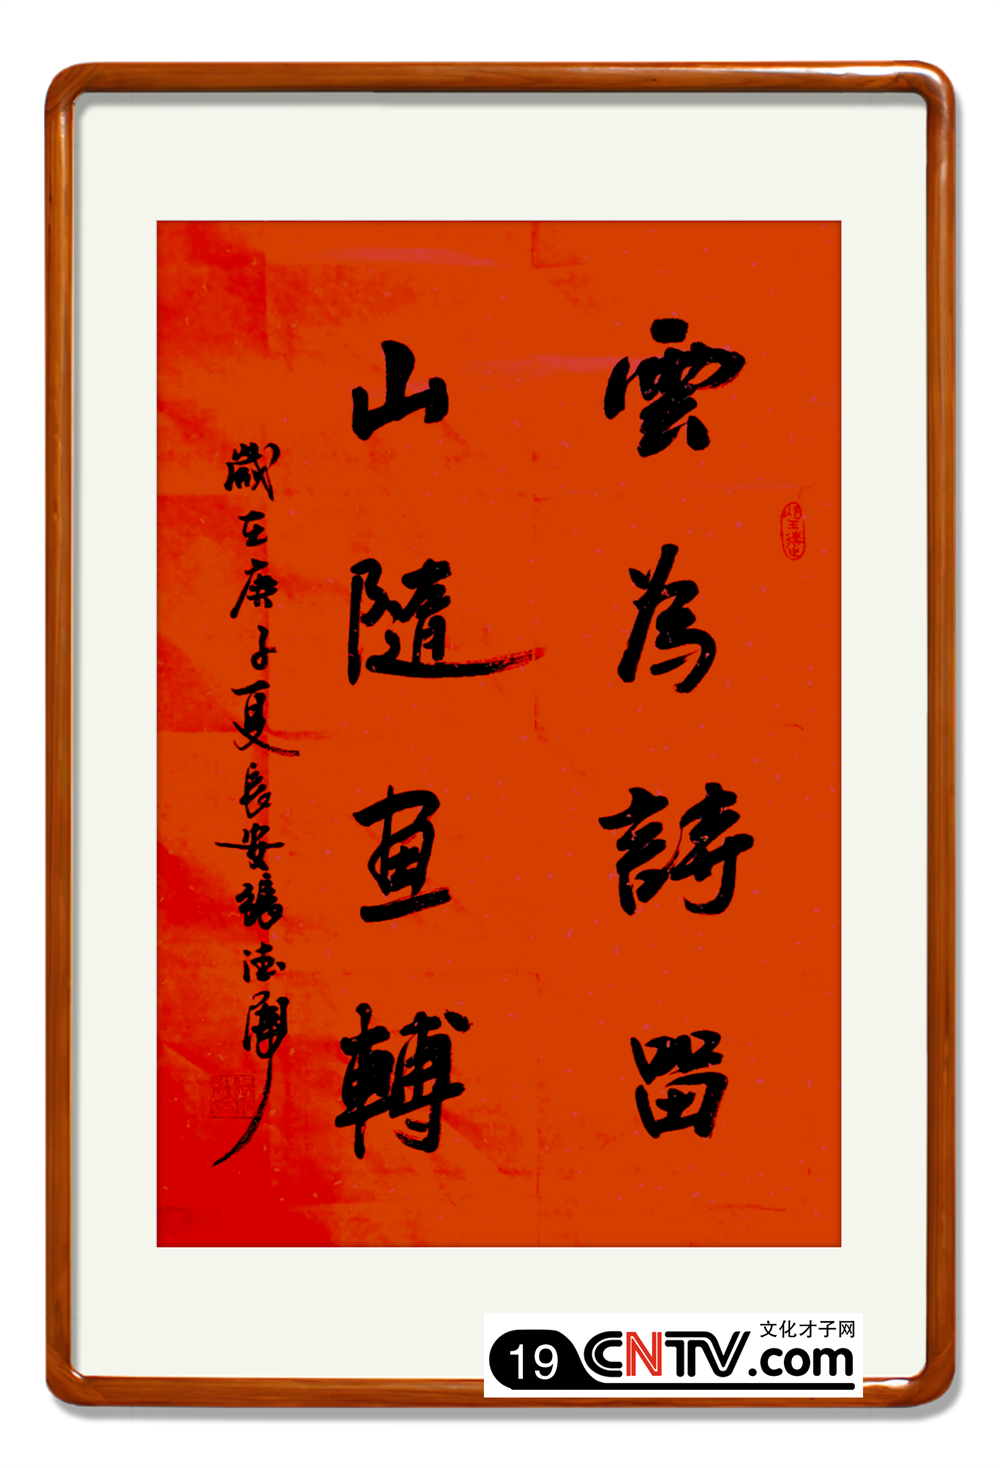 雲為詩留
山隨畫轉
歲在庚子夏長安張德
文化才子网
19CNTV.com